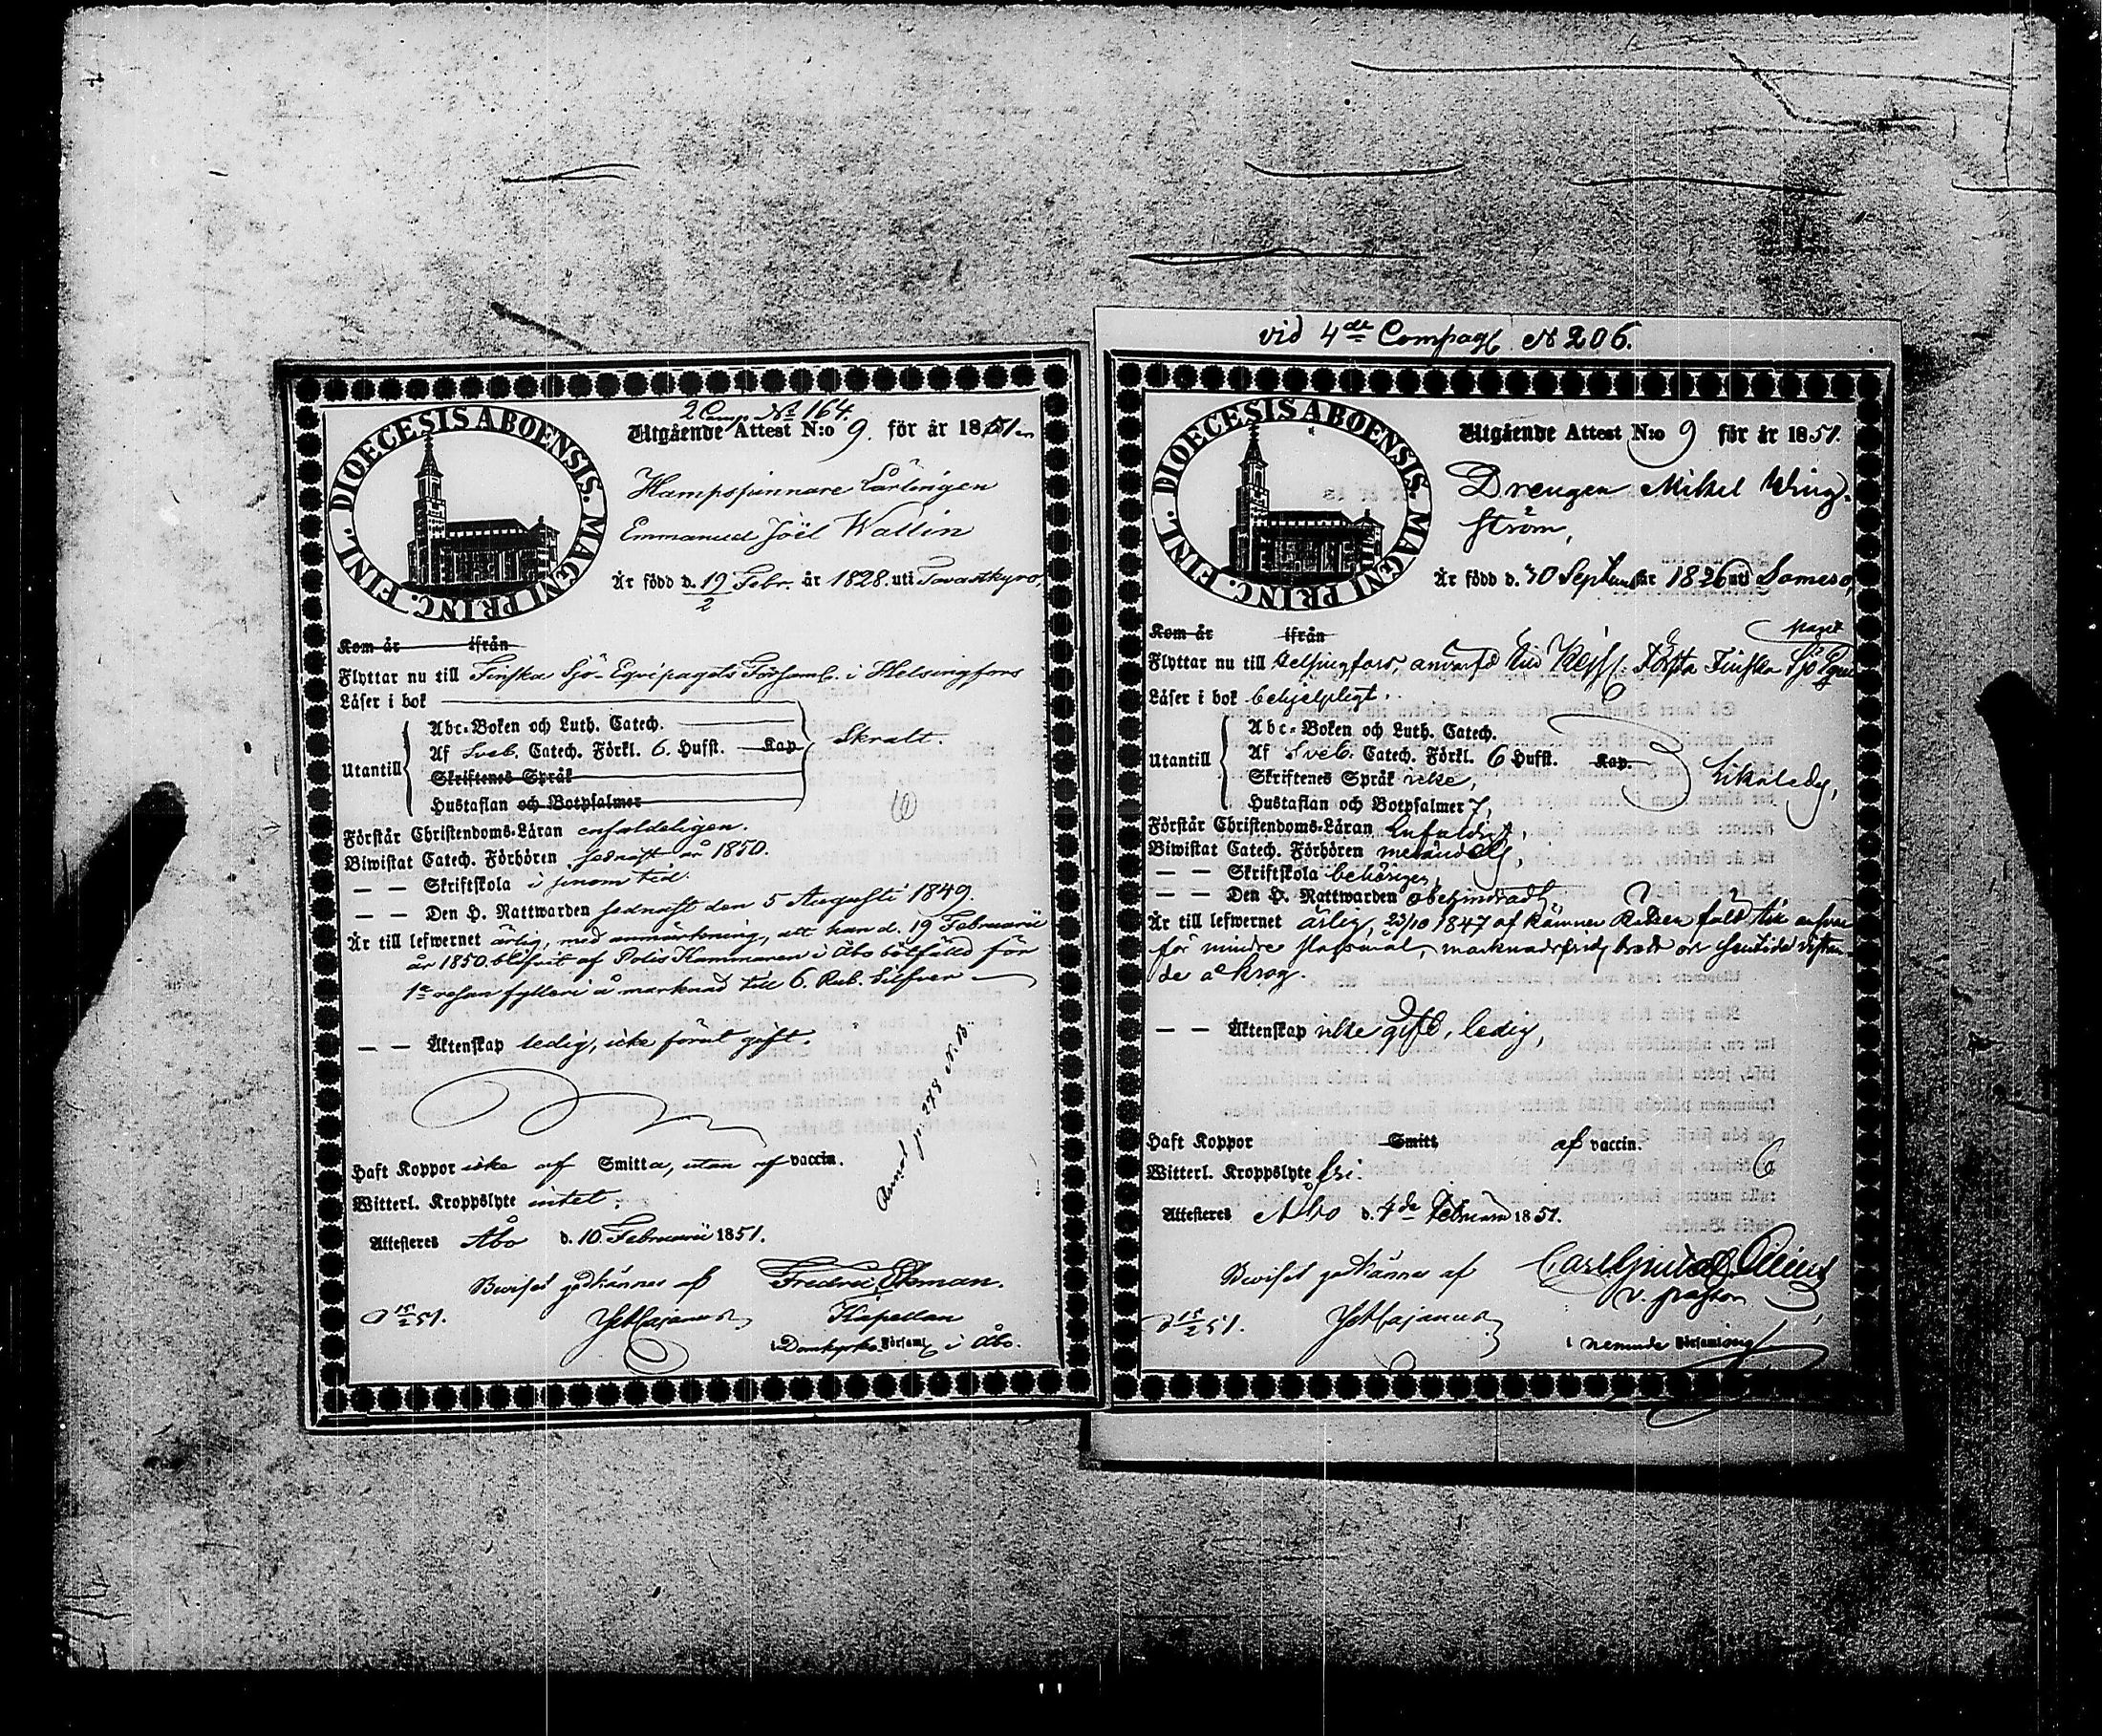 2 Comp. No 164.
DIOECESIS ABOENSIS. MAGNI PRINC. FINL.
Utgående Attest N:o 9. för år 1851.
Hampspinnare Lärlingen
Emmanuel Joël Wallin
Är född d. 19 Febr. år 1828. uti Tavastkyro,
2
Kom år ifrån
Flyttar nu till Finska Sjö-Equipagets Församl. i Helsingfors
Läser i bok
Abc-Boken och Luth. Catech.
Utantill Af Sveb. Catech. Förkl. 6. Hufst. Kap Skralt.
Skriftenes Språk
Hustaflan och Botpsalmer
Förstår Christendoms-Läran enfaldeligen.
Biwistat Catech. Förhören sednast år 1850.
— — Skriftskola i sinom tid.
— — Den H. Nattwarden sednast den 5 Augusti 1849.
Är till lefwernet ärlig, med anmärkning, att han d. 19 Februarii
år 1850. blifvit af Polis Kammaren i Åbo bötfälld för
1a resan fylleri å marknad till 6. Rub. Silfver
— — Äktenskap ledig, icke förut gift.
Haft Koppor icke af Smitta, utan af vaccin.
Witterl. Kroppslyte intet.
Annot. p. 278 N. B.
Attesteres Åbo d. 10. Februarii 1851.
Beviset godkännes af Fredric Ekman.
d 15/2 51. Kapellan
i Domkyrko Församl. i Åbo.
vid 4de Compag. No 206.
DIOECESIS ABOENSIS. MAGNI PRINC. FINL.
Utgående Attest N:o 9 för år 1851.
Drengen Mikel Wing-
ström,
Är född d. 30 September 1826 uti Somero,
Kom år ifrån
Flyttar nu till Helsingfors, Första Finska Sjö Equi
paget
Läser i bok behjelpligt.
Abc-Boken och Luth. Catech.
Utantill Af Sveb. Catech. Förkl. 6 Hufst. Kap.
Skriftenes Språk icke,
Hustaflan och Botpsalmer 7,
Förstår Christendoms-Läran Enfaldigt,
Biwistat Catech. Förhören
— — Skriftskola behörigen,
— — Den H. Nattwarden obehindradt,
Är till lefwernet ärlig, 23/10 1847 af Kämner Rätten
för mindre slagsmål, marknadsfrids brott och
de å krog.
— — Äktenskap icke gift, ledig,
Haft Koppor Smitt af vaccin.
Witterl. Kroppslyte fri.
Attesteres Åbo d. 4de Februarii 1851.
Beviset godkännes af
v. pastor
d 15/2 51.
i Församling